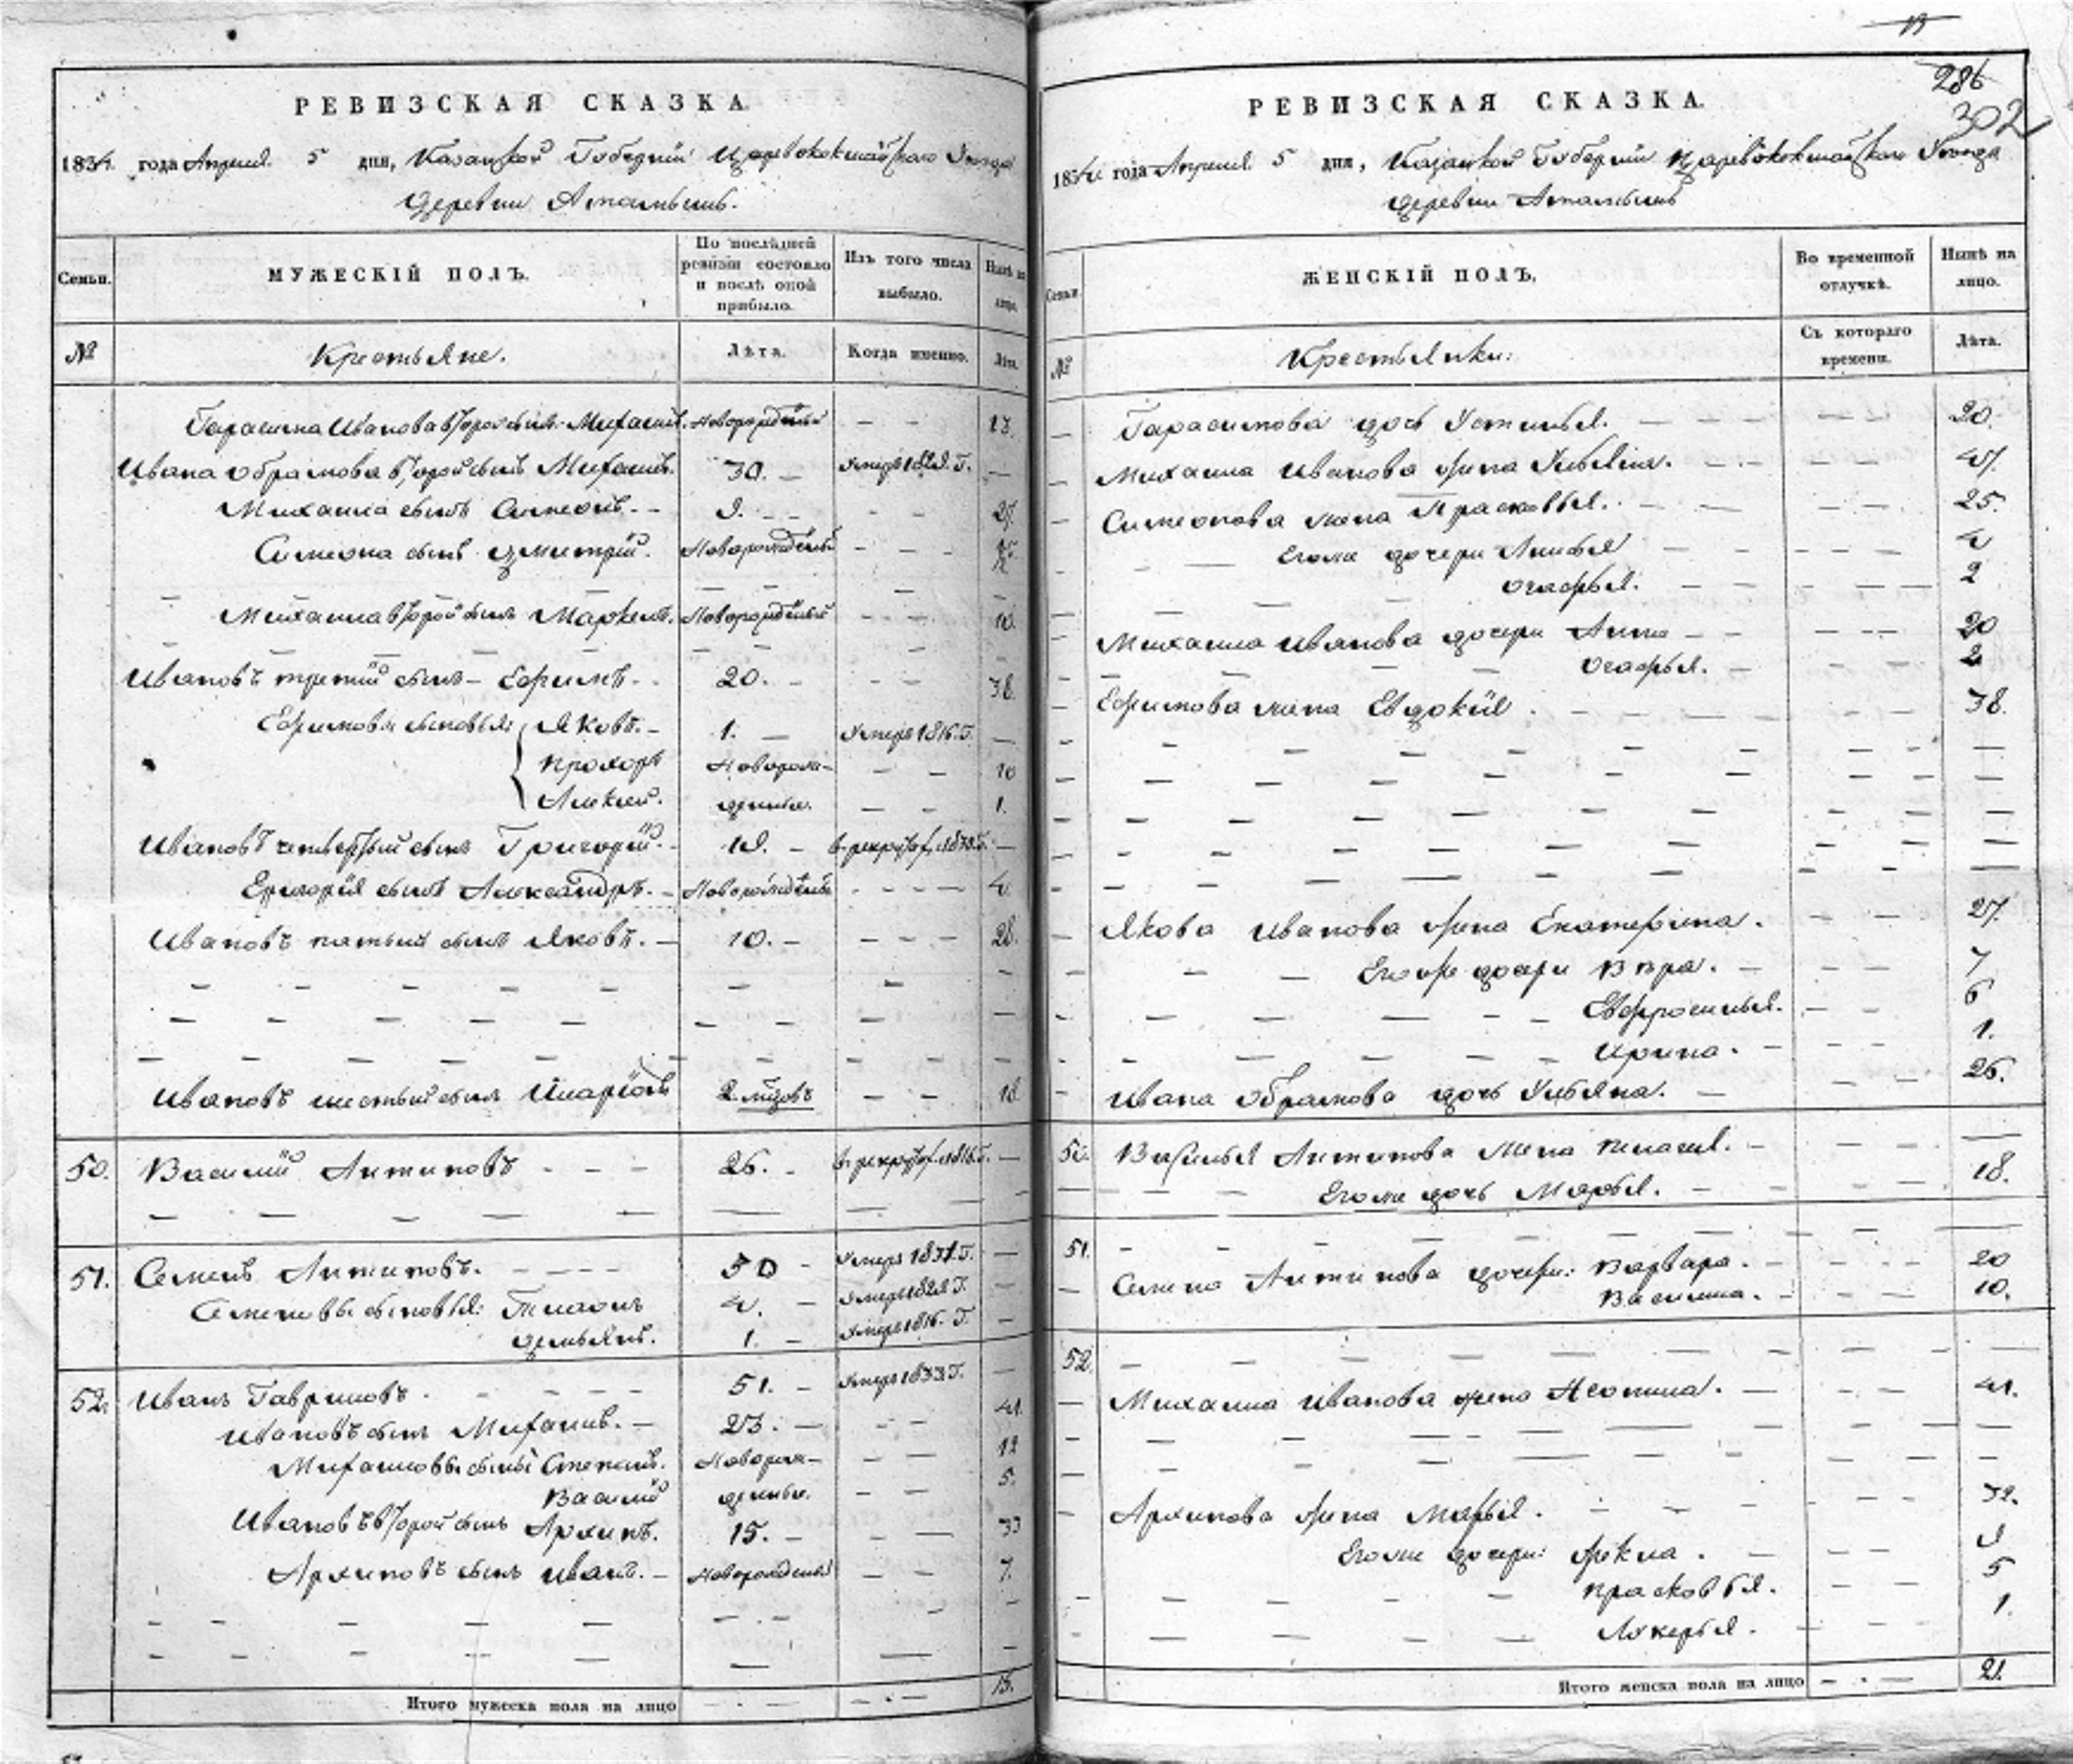 РЕВИЗСКАЯ СКАЗКА
1834 года Апреля 5 дня, Казанской Губернии Царевококшайскаго Уезда
деревни Атамышъ.
Семьи. МУЖЕСКІЙ ПОЛЪ. По послѣдней ревизіи состояло и послѣ оной прибыло. Изъ того числа выбыло. Нынѣ на лицо.
№ Крестьяне. Лѣта. Когда именно. Лѣта.
Гарасима Иванова второй сынъ Михаилъ. Новорожденный — — 13.
Ивана Обрамова второй сынъ Михаилъ. 30. — Умеръ 1829. Г. —
Михаила сынъ Симеонъ. — 9. — — 27.
Симеона сынъ Дмитрій. Новорожденный — — —
Михаила второй сынъ Маркелъ. Новорожденный — — 10.
Ивановъ третій сынъ — Ефимъ. 20. — — — 38.
Ефимовы сыновья: Яковъ. — 1. — Умеръ 1816. Г. —
Прохоръ Новорож- — — 10
Алексей. денныи. — — 1.
Ивановъ четвертый сынъ Григорій. 19. — в рекруты 1830. Г. —
Григорія сынъ Александръ. — Новорожденный — — — 4.
Ивановъ пятый сынъ Яковъ. — 10. — — — — 28.
Ивановъ шестый сынъ Иларіонъ — — 18.
50. Василий Антиповъ — — — 26. — в рекруты 1816. Г. —
51. Семенъ Антиповъ. — — — 50 — Умеръ 1831. Г. —
Семеновы сыновья: 4. — Умеръ 1829. Г. —
Демьянъ. 1. — Умеръ 1816. Г. —
52. Иванъ Гавриловъ. — — — — 51. — Умеръ 1833. Г. —
Ивановъ сынъ Михаилъ. — 23. — — — 41.
Михаиловы сыны Степанъ. Новорож- — — 12
Василий денныи. — — 5.
Ивановъ второй сынъ Архипъ. 15. — — — 33
Архиповъ сынъ Иванъ. — Новорожденный — — 7.
Итого мужеска пола на лицо — — — — 15.
13
286
302
РЕВИЗСКАЯ СКАЗКА.
1834 года Апреля 5 дня, Казанской Губернии Царевококшайскаго Уезда
деревни Атамышъ
Семьи. ЖЕНСКІЙ ПОЛЪ. Во временной отлучкѣ. Нынѣ на лицо.
№ Крестьянки: Съ котораго времени. Лѣта.
Гарасимова дочь Устинья. — — — 20.
Михаила Иванова жена Ульяна. — — — 47.
Симеонова жена Прасковья. — — — 25.
Егоже дочери — — — 4
Огафья. — — — 2
Михаила Иванова дочери Анна — — — 20
Огафья. — — — 2
Ефимова жена Евдокія. — — — 38.
Якова Иванова жена Екатерина. — — 27.
Егоже дочери Вера. — — — 7
Евфросинья. — — 6
Ирина. — — — 1.
Ивана Обрамова дочь Ульяна. — — — 26.
50. Василья Антипова жена Пелагия. — — — —
Егоже дочь Марья. — — — 18.
51. — — — — —
Семена Антипова дочери: Варвара. — — — 20
Василиса. — — — 10.
52. — — — — —
Михаила Иванова жена — — — 41.
Архипова жена Марья. — — — 32.
Егоже дочери: Фекла. — — — 9
Прасковья. — — 5
Лукерья. — — — 1.
Итого женска пола на лицо — — — 21.